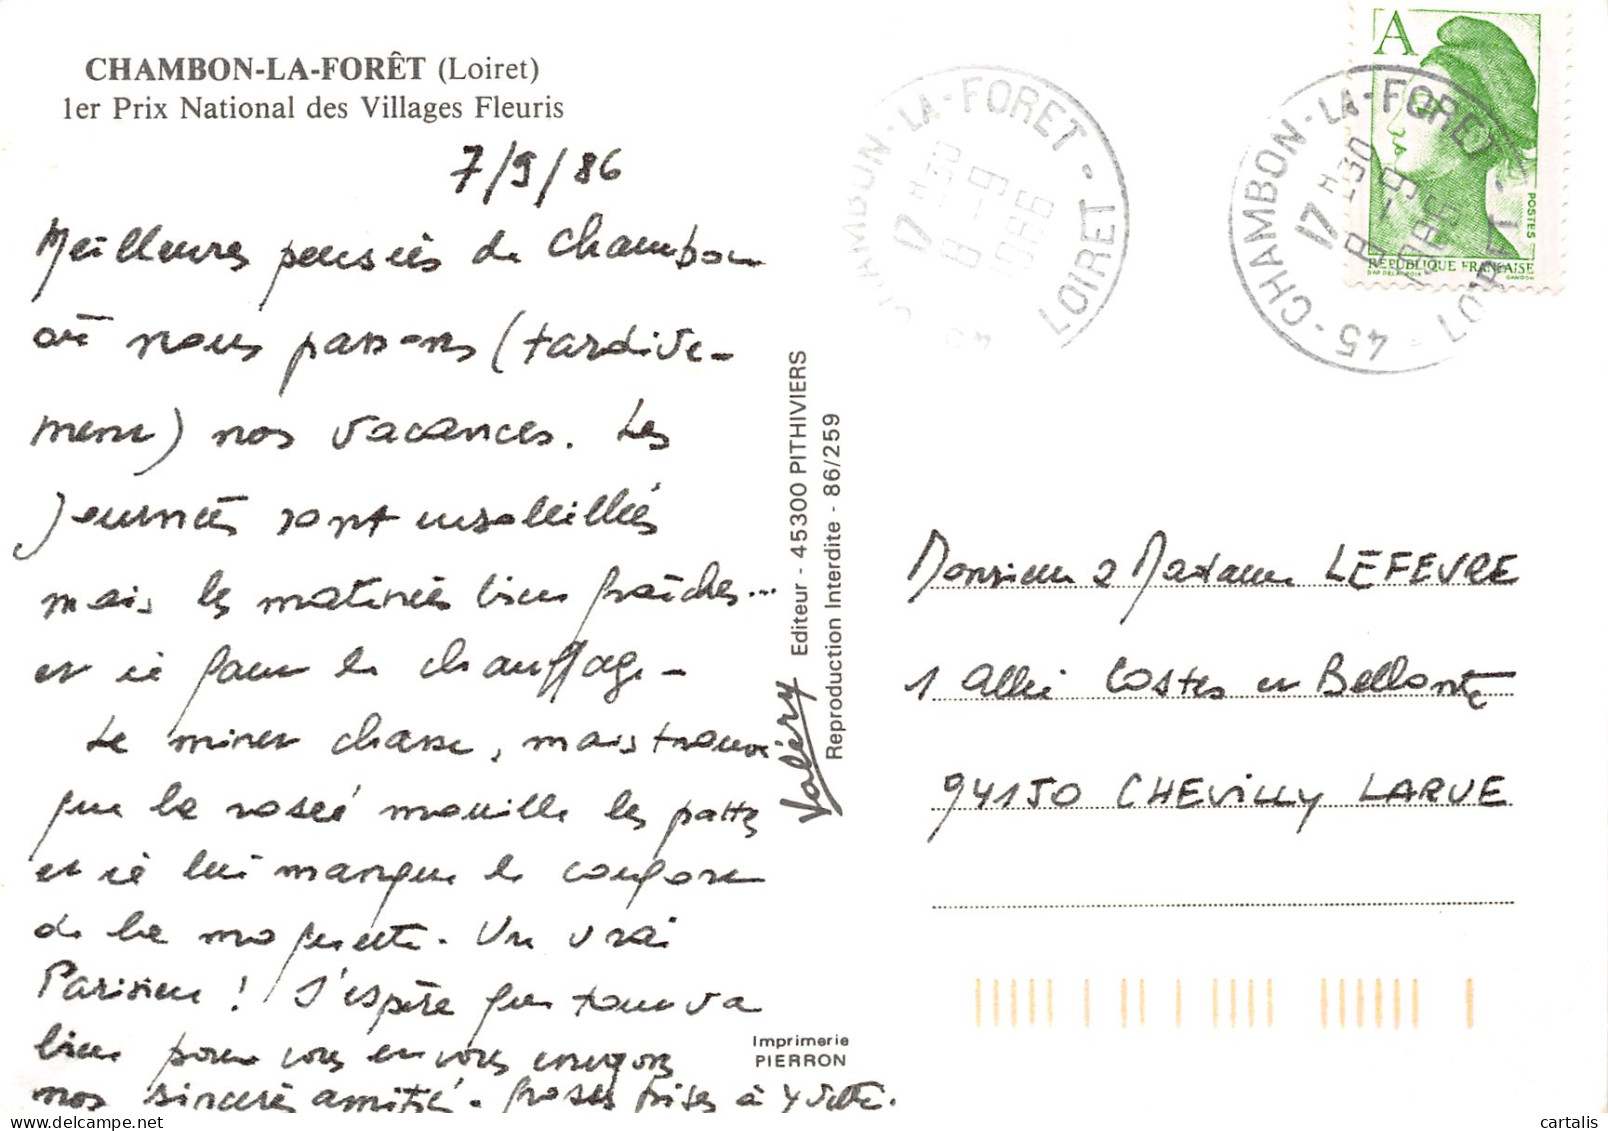 CHAMBON-LA-FORÊT (Loiret)
1er Prix National des Villages Fleuris
7/9/86
Meilleures pensées de Chambon
où nous passons (tardive-
ment) nos vacances. Les
journées sont ensoleillées
mais les matinées bien fraîches...
et ici faut le chauffage -
Le minet chasse, mais trouve
que la rosée mouille les pattes
et ici lui manque le
de la moquette. Un vrai
Parisien ! J'espère que tout va
bien pour vous en vous envoyons
nos sincères amitiés - Grosses bises à Yvette.
Valéry Editeur - 45300 PITHIVIERS
Reproduction Interdite - 86/259
Imprimerie
PIERRON
45 - CHAMBON-LA-FORET - LOIRET
17 H 30
8 - 9
1986
45 - CHAMBON-LA-FORET - LOIRET
17 H 30
8 - 9
1986
A
POSTES
RÉPUBLIQUE FRANÇAISE
D'AP DELACROIX
GANDON
Monsieur & Madame LEFEVRE
1 Allée Costes et Bellonte
94150 CHEVILLY LARUE
cartalis.com